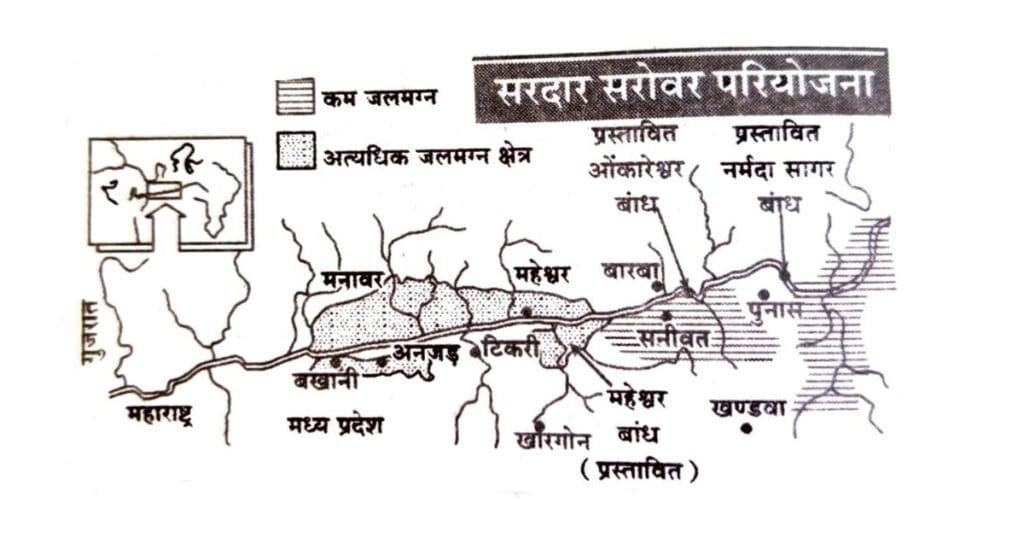 सरदार सरोवर परियोजना
कम जलमग्न
अत्यधिक जलमग्न क्षेत्र
प्रस्तावित
ओंकारेश्वर
बांध
प्रस्तावित
नर्मदा सागर
बांध
मनावर
महेश्वर
बारबा
पुनास
सनीवत
गुजरात
अनजड़
टिकरी
बखानी
महाराष्ट्र
मध्य प्रदेश
खारगोन
महेश्वर
बांध
(प्रस्तावित)
खण्डवा